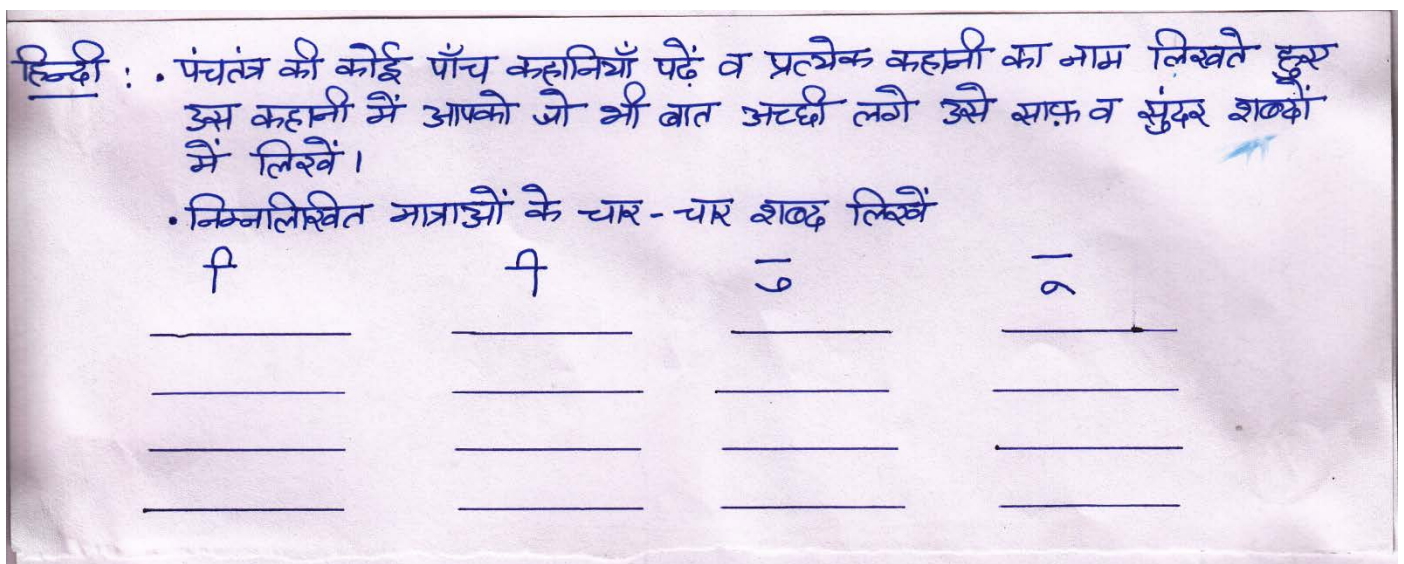 हिन्दी : • पंचतंत्र की कोई पाँच कहानियाँ पढ़ें व प्रत्येक कहानी का नाम लिखते हुए
उस कहानी में आपको जो भी बात अच्छी लगे उसे साफ़ व सुंदर शब्दों
में लिखें।
• निम्नलिखित मात्राओं के चार-चार शब्द लिखें
ि ी ु ू